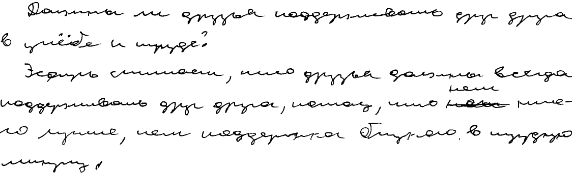 Должны ли друзья поддерживать друг друга
в учёбе и труде?
считаю, что друзья должны всегда
поддерживать друг друга, потому, что нет ниче-
го лучше, чем поддержка близкого в трудную
минуту.